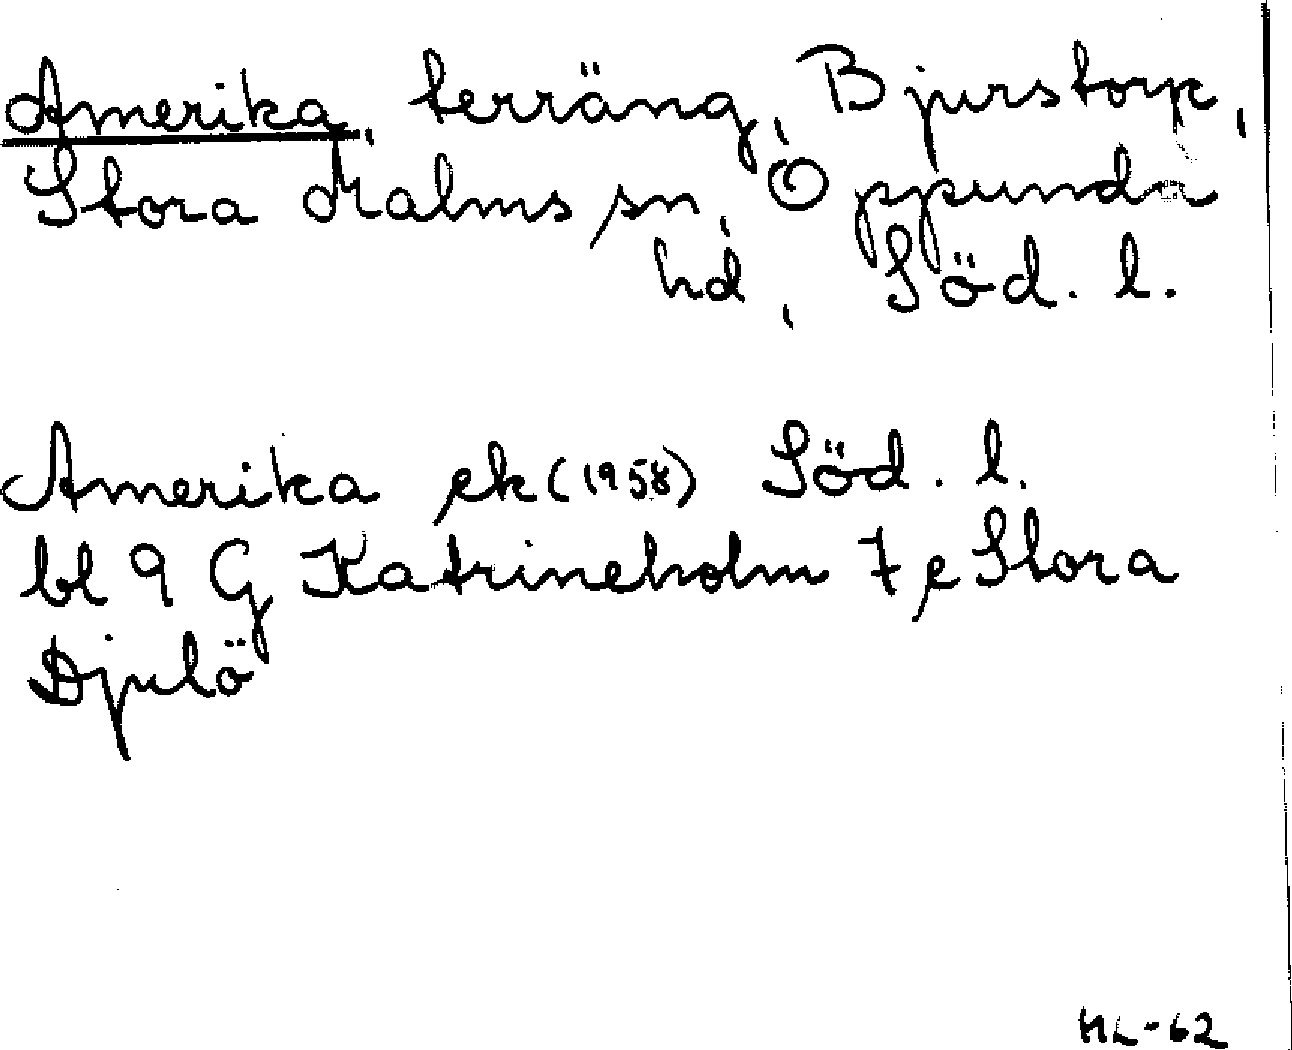 Amerika, terräng, Bjurstorp,
Stora Malms sn, Oppunda
hd, Söd. l.
Amerika ek (1958) Söd. l.
bl 9 G Katrineholm 7 e Stora
Djulö
HL-62